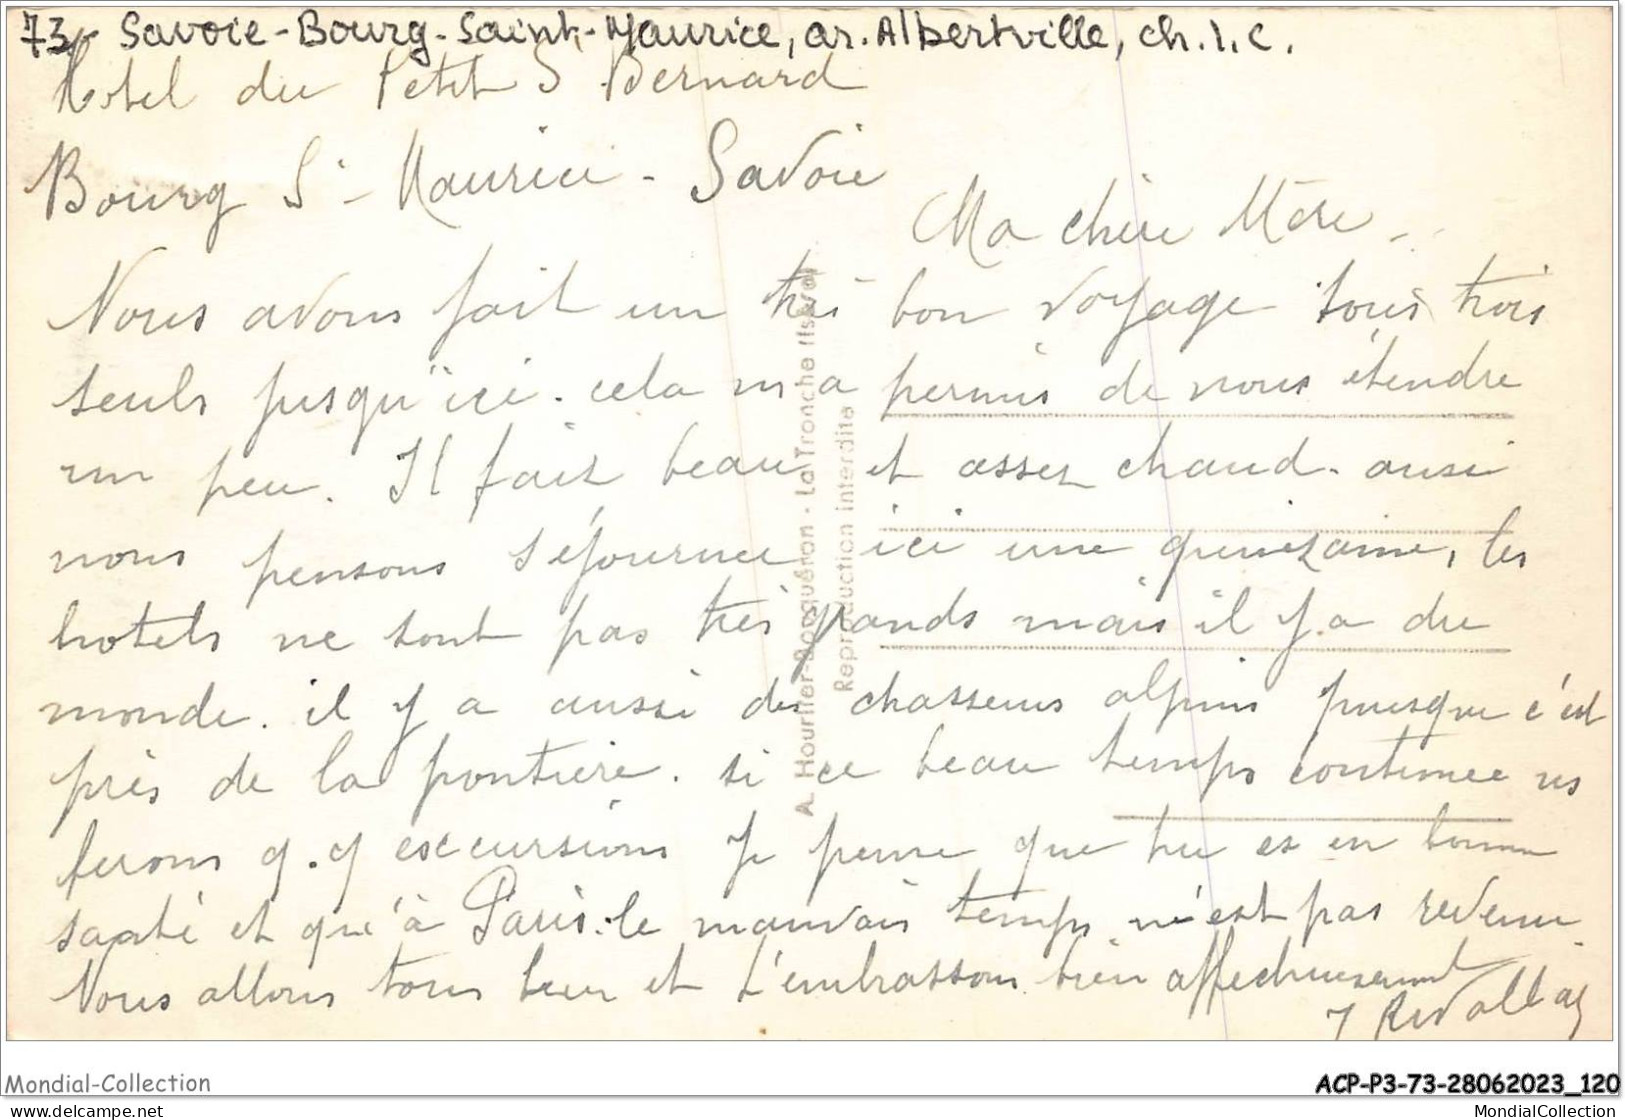 73 - Savoie - Bourg-Saint-Maurice, ar. Albertville, ch.l.c.
Hotel du Petit St Bernard
Bourg St-Maurice - Savoie
Ma chère Mère -
Nous avons fait un très bon voyage tous trois
seuls jusqu'ici. cela m'a permis de nous étendre
un peu. Il fait beau et assez chaud. aussi
nous pensons séjourner ici une quinzaine, les
hotels ne sont pas très grands mais il y a du
monde. il y a aussi des chasseurs alpins puisque c'est
près de la frontière. si ce beau temps continue ns
ferons q.q excursions Je pense que tu es en bonne
santé et qu'à Paris le mauvais temps n'est pas revenu.
Nous allons tous bien et t'embrassons bien affectueusement
A. Hourlier-Bocquéron - La Tronche (Isère)
Reproduction interdite
Mondial-Collection
ACP-P3-73-28062023_120
www.delcampe.net
MondialCollection